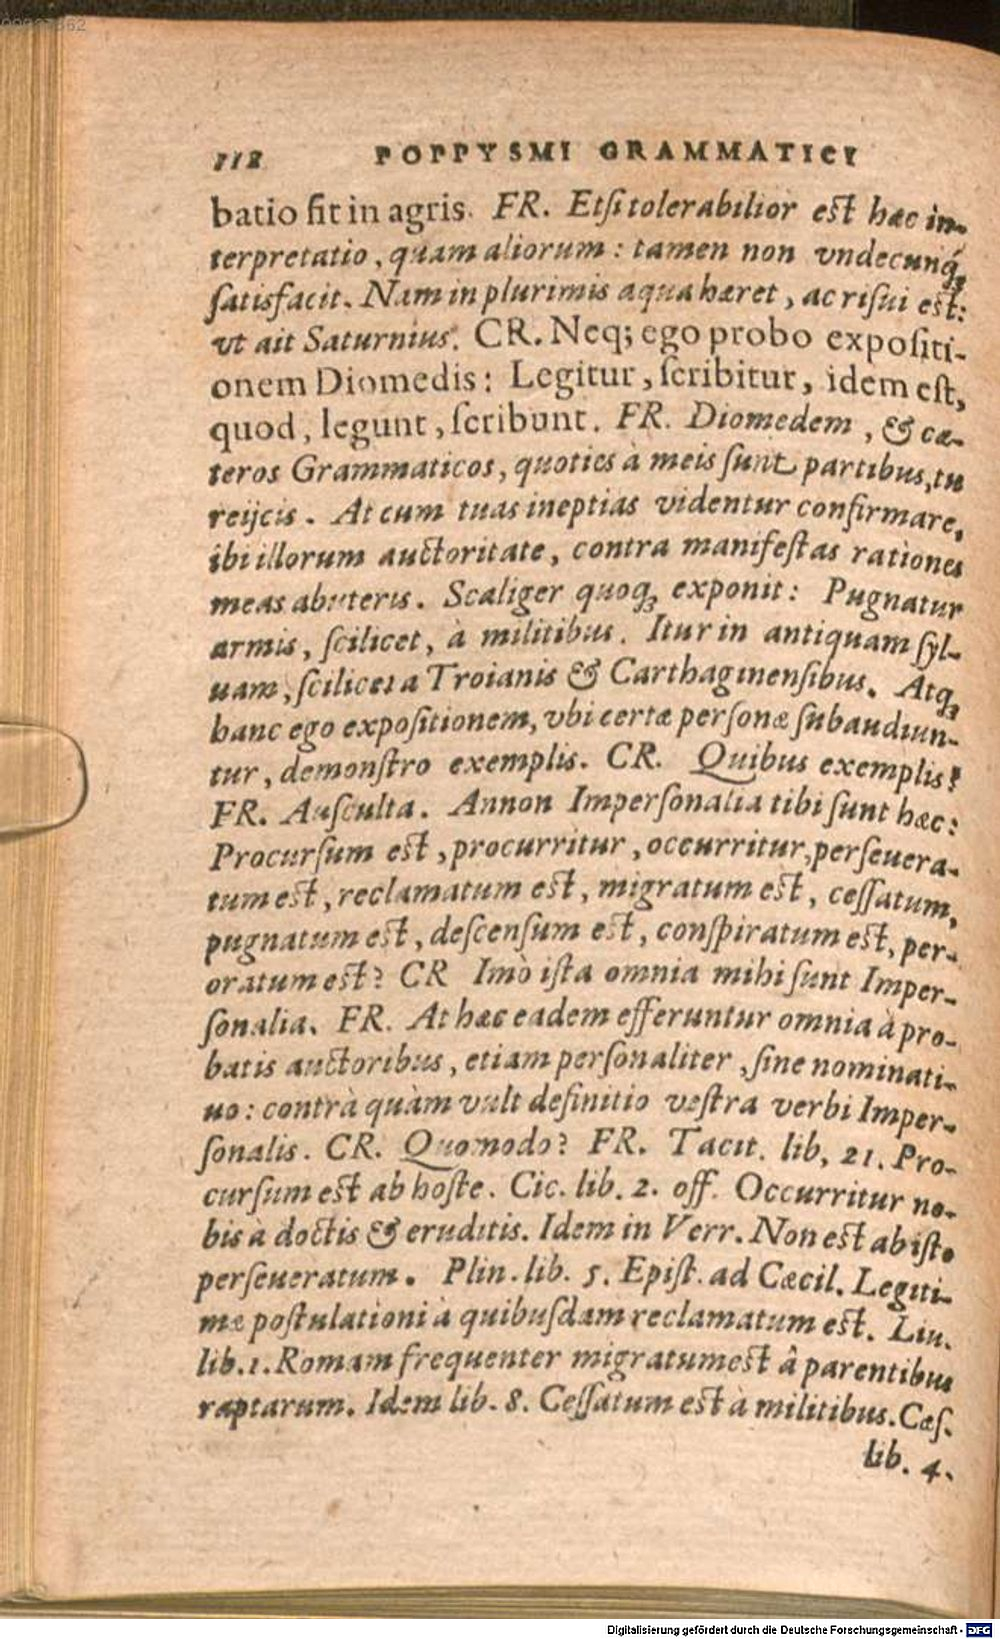 118 POPPYSMI GRAMMATICI
batio fit in agris. FR. Etſi tolerabilior est hæc in-
terpretatio, quam aliorum: tamen non vndecunq́;
ſatisfacit. Nam in plurimis aqua hæret, ac riſui est:
vt ait Saturnius. CR. Neq; ego probo expoſiti-
onem Diomedis: Legitur, ſcribitur, idem eſt,
quod, legunt, ſcribunt. FR. Diomedem, & cæ-
teros Grammaticos, quoties à meis ſunt partibus, tu
reijcis. At cum tuas ineptias videntur confirmare,
ibi illorum auctoritate, contra manifeſtas rationes
meas abuteris. Scaliger quoq; exponit: Pugnatur
armis, ſcilicet, à militibus. Itur in antiquam ſyl-
uam, ſcilicet a Troianis & Carthaginenſibus. Atq;
hanc ego expoſitionem, vbi certæ perſonæ ſubaudiun-
tur, demonſtro exemplis. CR. Quibus exemplis?
FR. Auſculta. Annon Imperſonalia tibi ſunt hæc:
Procurſum est, procurritur, occurritur, perſeuera-
tum est, reclamatum est, migratum est, ceſſatum,
pugnatum est, deſcenſum est, conſpiratum est, per-
oratum est? CR Imò iſta omnia mihi ſunt Imper-
ſonalia. FR. At hæc eadem efferuntur omnia à pro-
batis auctoribus, etiam perſonaliter, ſine nominati-
uo: contrà quàm vult definitio veſtra verbi Imper-
ſonalis. CR. Quomodo? FR. Tacit. lib, 21. Pro-
curſum est ab hoſte. Cic. lib. 2. off. Occurritur no-
bis à doctis & eruditis. Idem in Verr. Non est ab iſto
perſeueratum. Plin. lib. 5. Epiſt. ad Cæcil. Legiti-
mæ poſtulationi à quibuſdam reclamatum est. Liu.
lib. 1. Romam frequenter migratum est â parentibus
raptarum. Idem lib. 8. Ceſſatum est à militibus. Cæſ.
lib. 4.
Digitalisierung gefördert durch die Deutsche Forschungsgemeinschaft - DFG